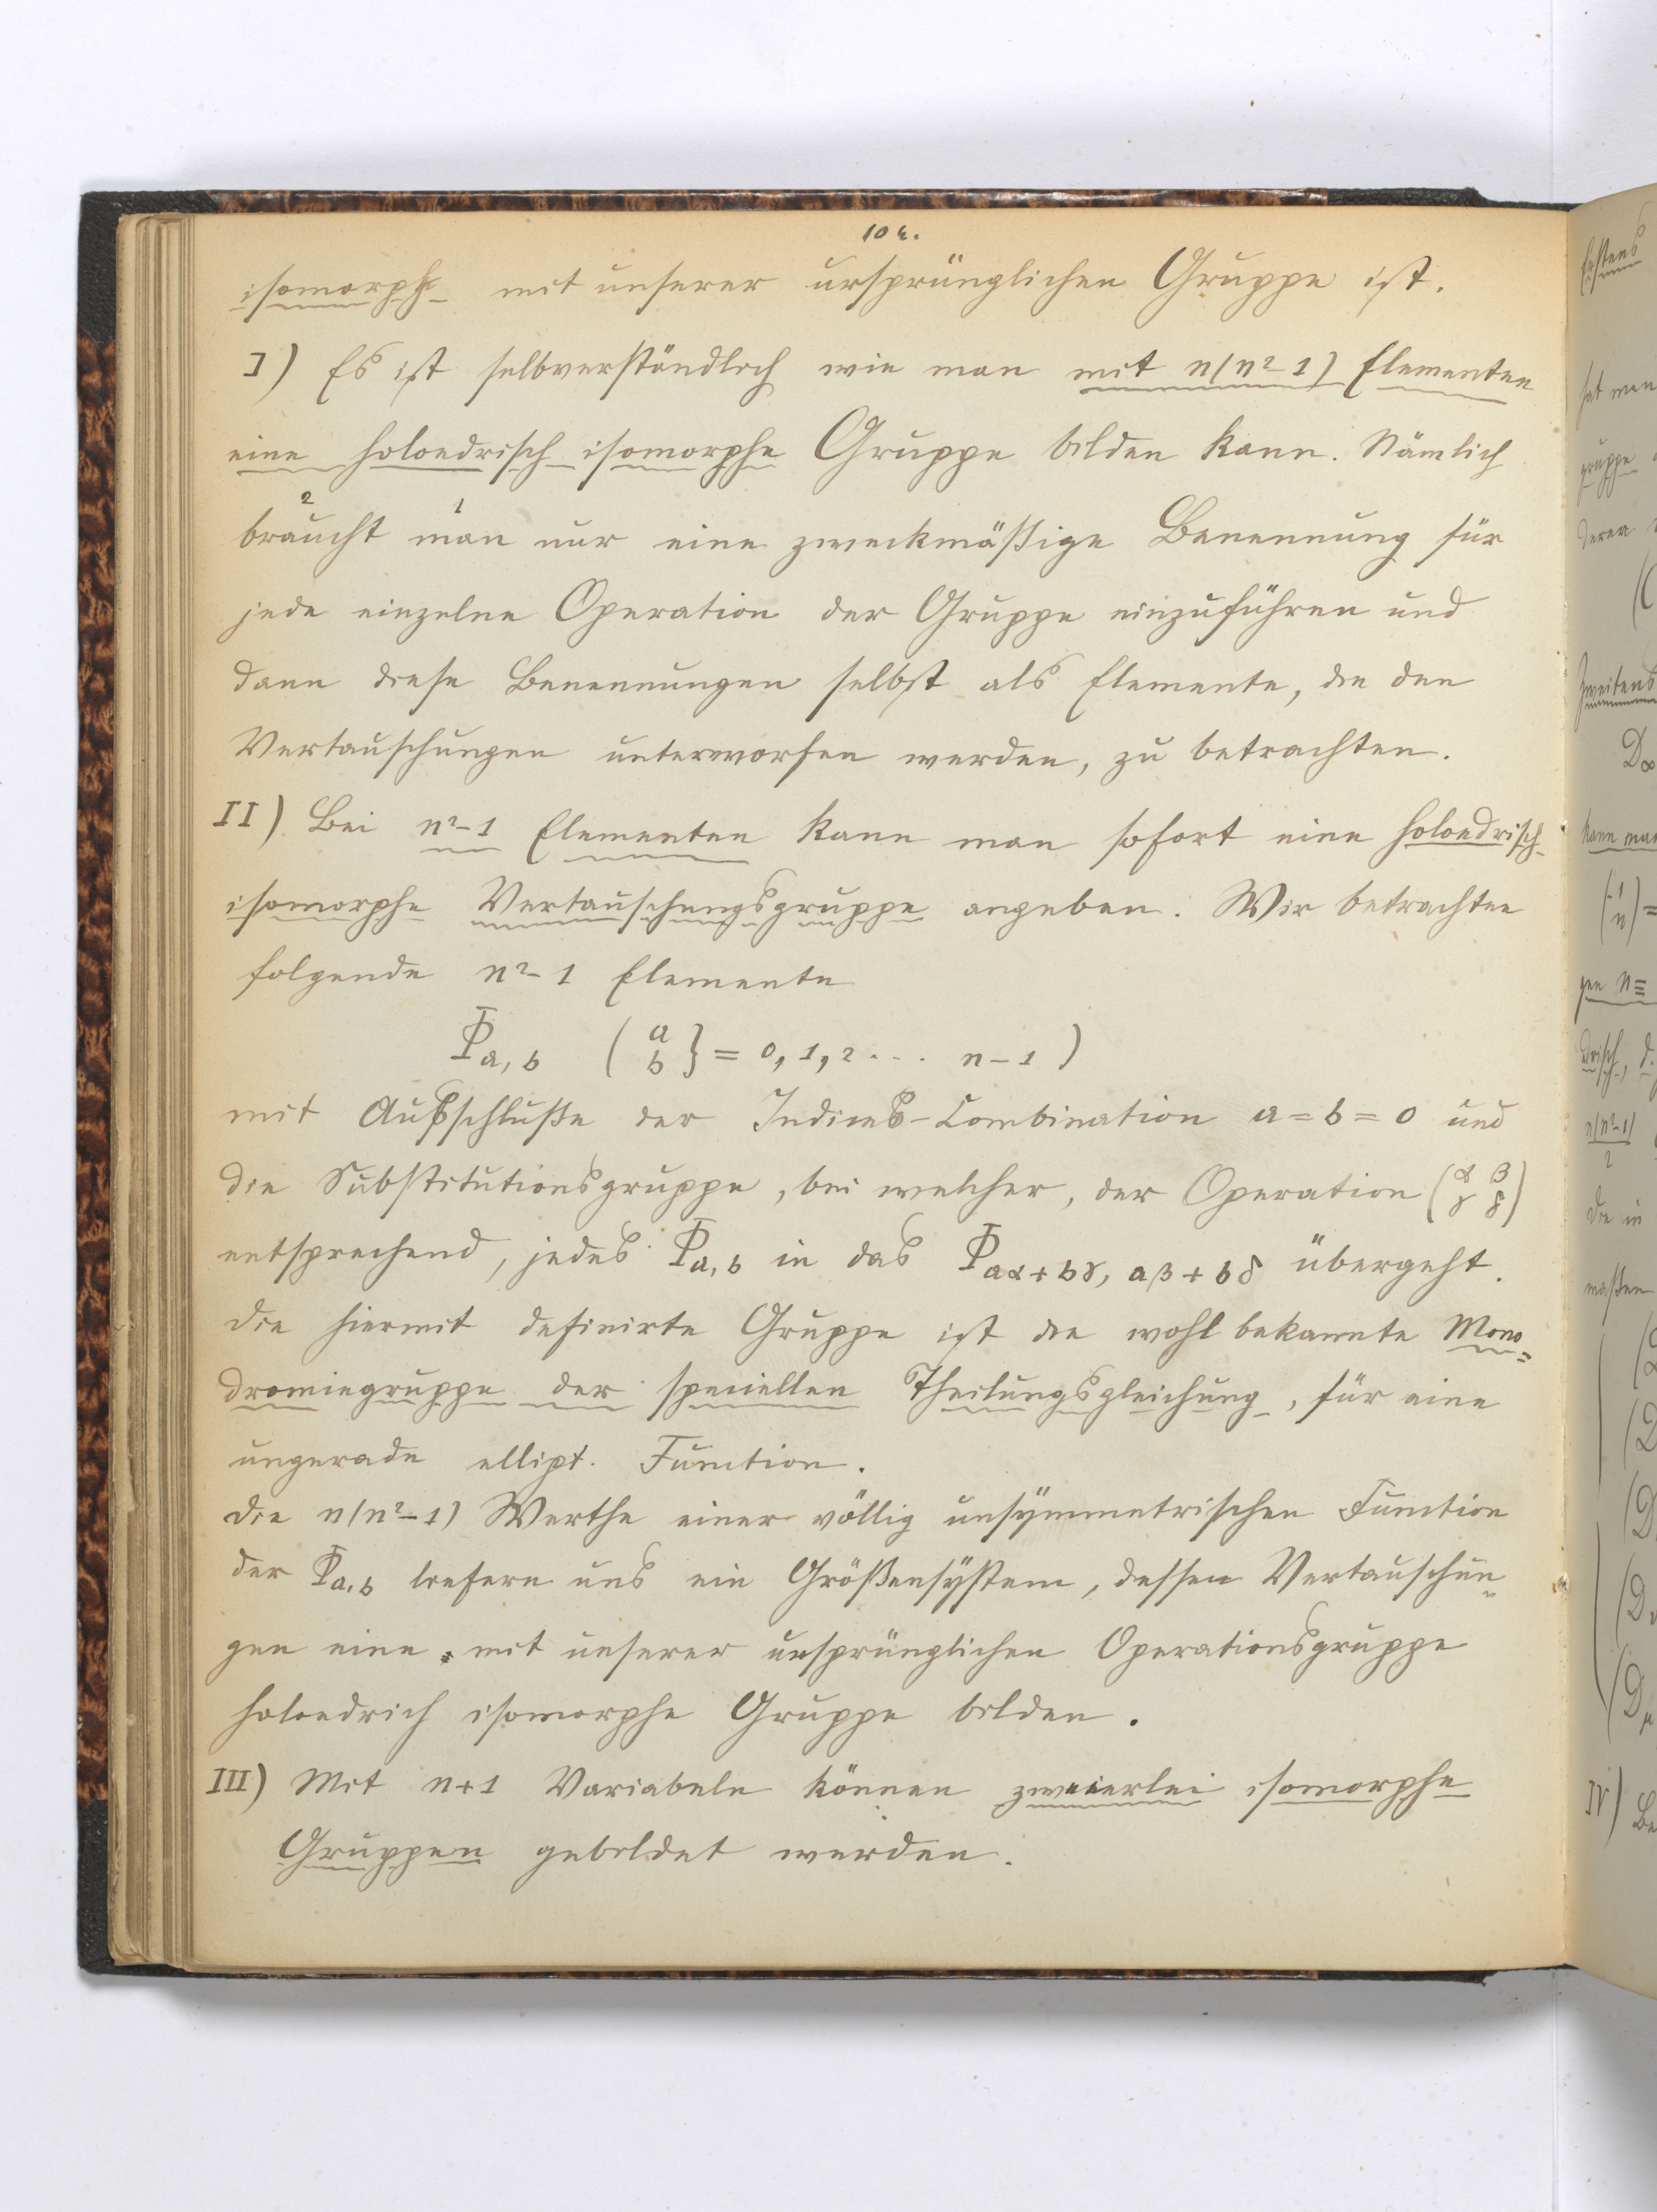 104.
isomorph mit unserer ursprünglichen Gruppe ist.
I) Es ist selbverständlich wie man mit n(n²-1) Elementen
eine holoedrisch isomorphe Gruppe bilden kann. Nämlich
2 1
braucht man nur eine zweckmäßige Benennung für
jede einzelne Operation der Gruppe einzuführen und
dann diese Benennungen selbst als Elemente, die den
Vertauschungen unterworfen werden, zu betrachten.
II) Bei n²-1 Elementen kann man sofort eine holoedrisch
isomorphe Vertauschungsgruppe angeben. Wir betrachten
folgende n²-1 Elemente
Φa,b (a b} = 0, 1, 2 ... n-1)
mit Außschluße der Indices-Combination a = b = 0 und
die Substitutionsgruppe, bei welcher, der Operation (α β γ δ)
entsprechend, jedes Φa,b in das Φaα+bγ, aβ+bδ übergeht.
die hiermit definirte Gruppe ist die wohl bekannte Mono=
dromiegruppe der speciellen Theilungsgleichung, für eine
ungerade ellipt. Function.
die n(n²-1) Werthe einer völlig unsymmetrischen Function
der Φa,b liefern uns ein Größensystem, dessen Vertauschun=
gen eine mit unserer ursprünglichen Operationsgruppe
holoedrich isomorphe Gruppe bilden.
III) Mit n+1 Variabeln können zweierlei isomorphe
Gruppen gebildet werden.
Erstens
hat man
gruppe
deren
Zweitens
D∞
kann man
(-1 n) =
gen n≡
drisch, d.
n(n²-1)
2
die in
maßen
IV) Be